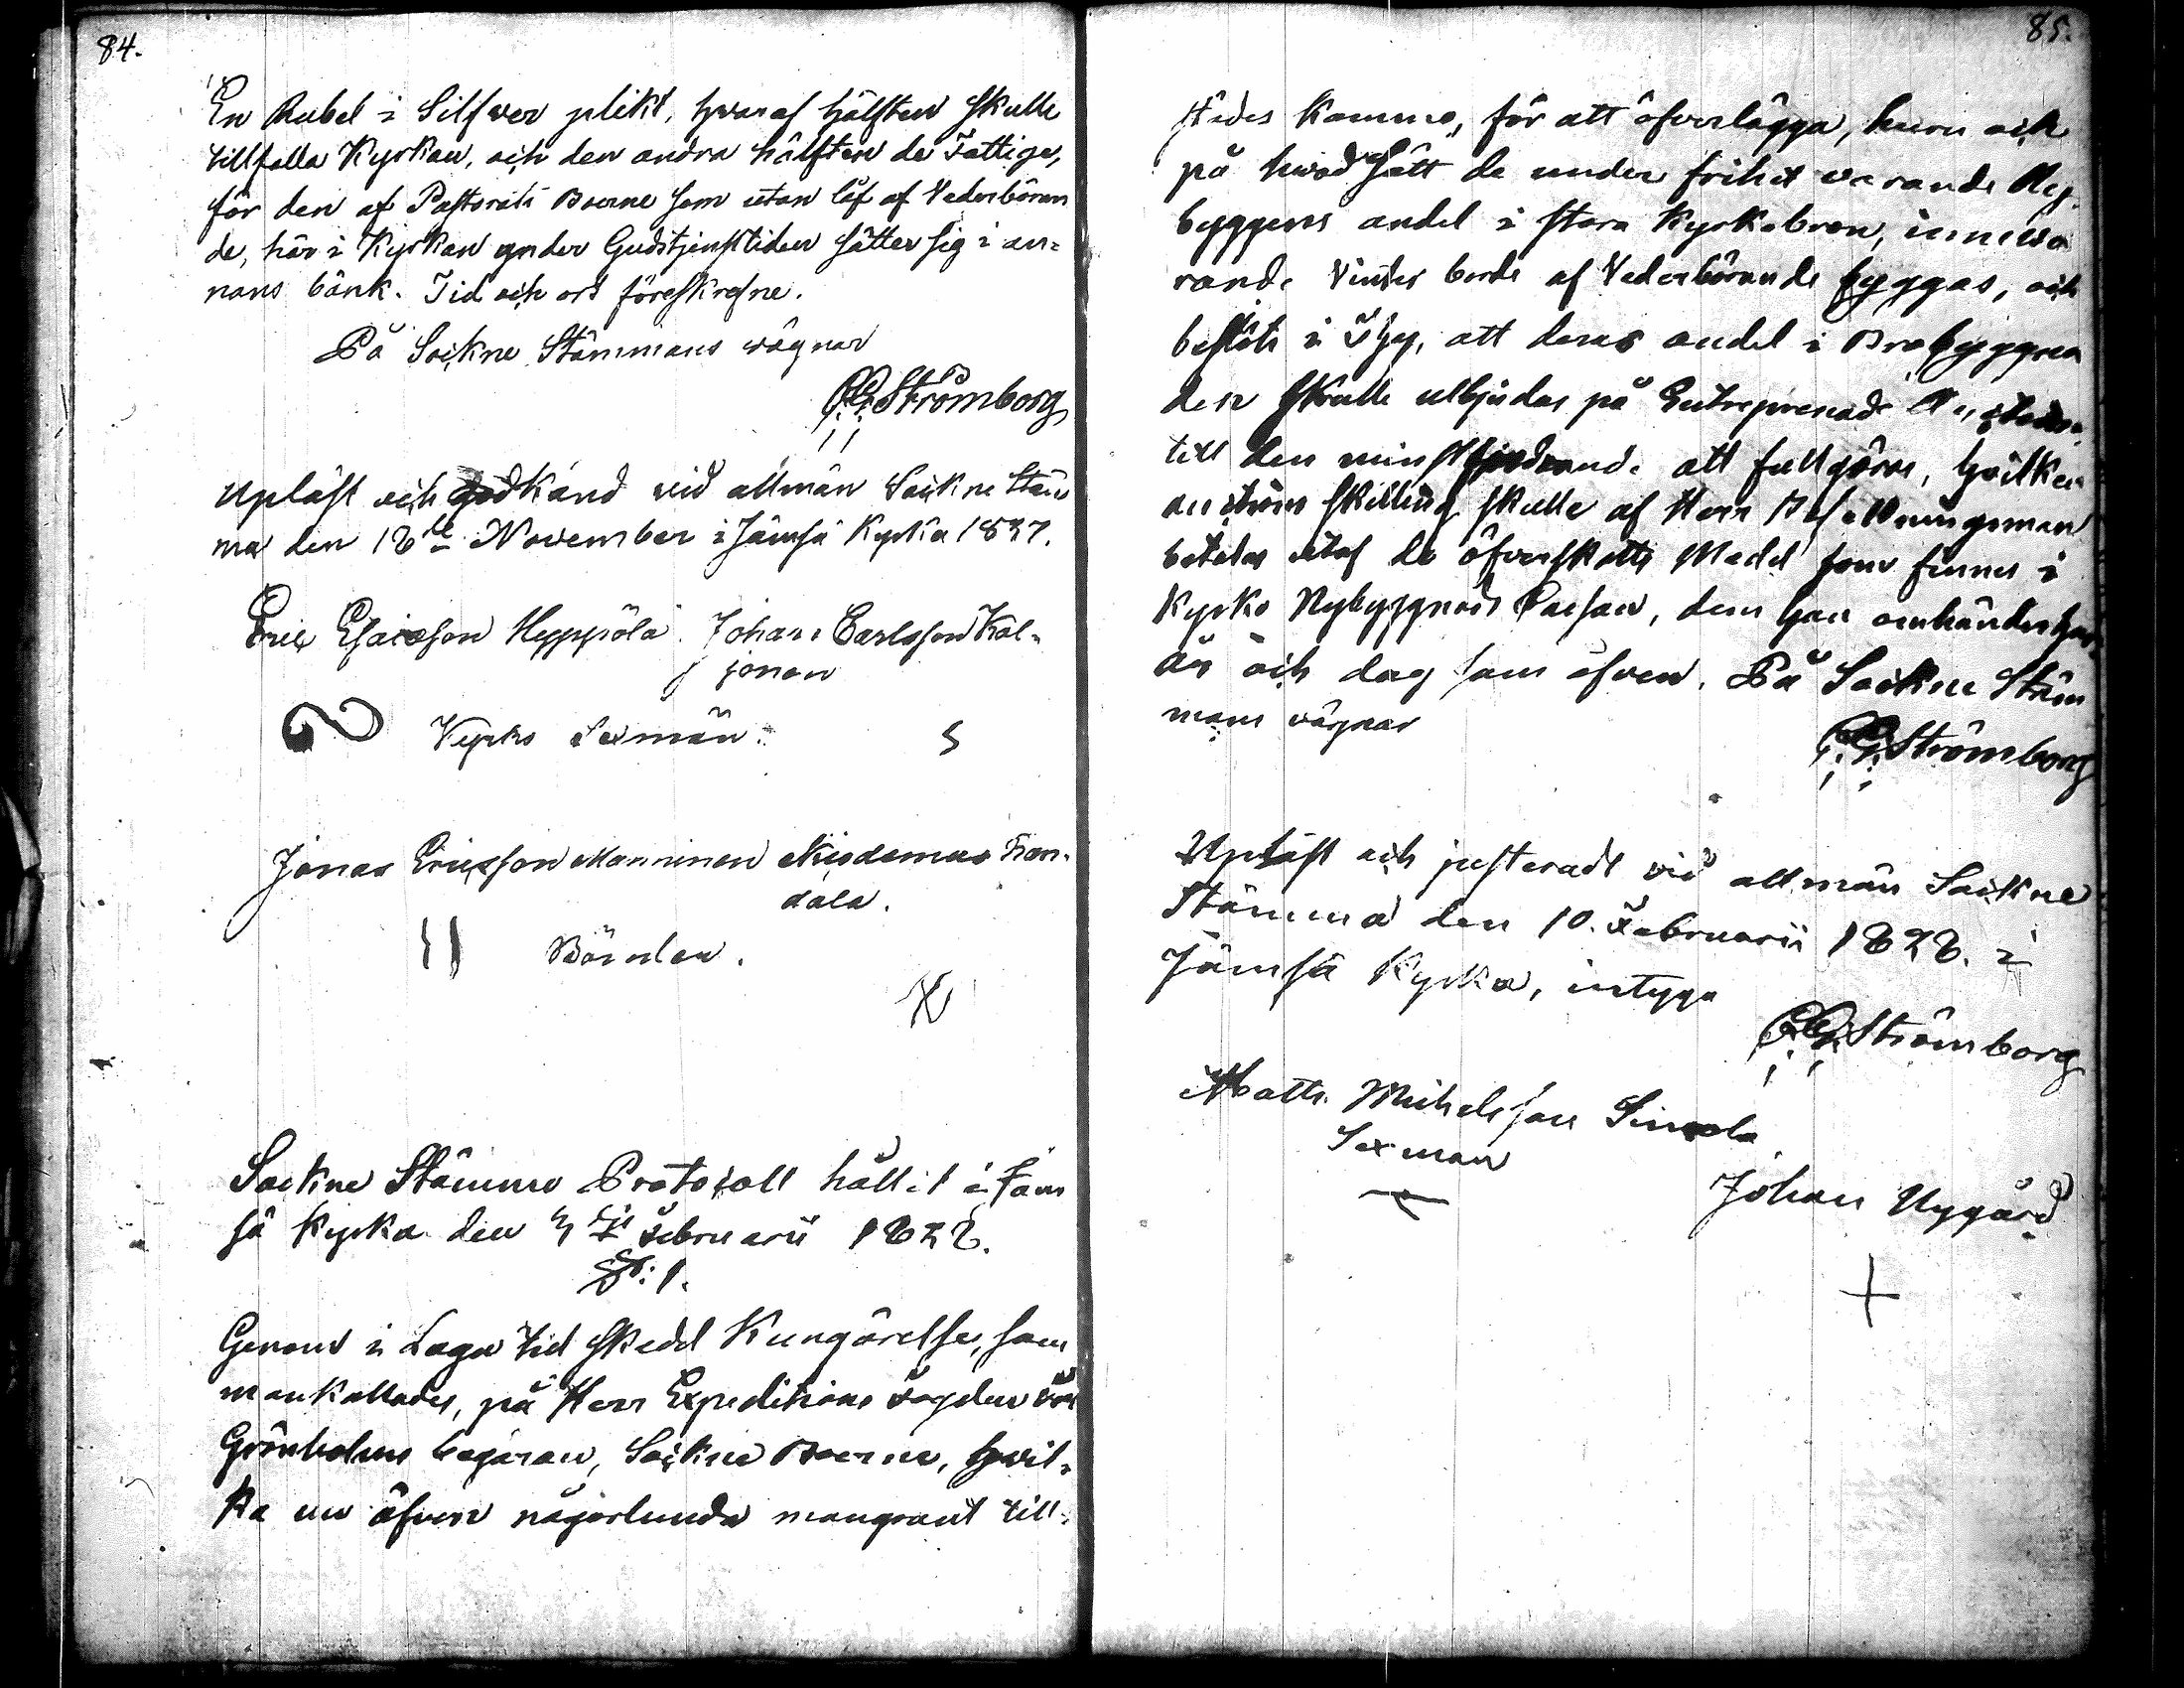 84.
En Rubel i Silfwer plikt, hwaraf hälften skulle
tillfalla Kyrkan, och den andra hälften de Fattige,
för den af Pastorats Boerne som utan låf af Vederböran
de, här i Kyrkan under Gudstjenstiden sätter sig i an=
nans bänk. Tid och ort föreskrefne.
På Sockne Stämmans wägnar
C.G. Strömborg
Upläst och godkänd vid allmän Sockne Stäm
ma den 18de November i Jämsä Kyrka 1837.
Eric Esaiasson Hyppölä. Johan Carlsson Kal=
jonen
Kyrko Sexmän.
Jonas Ericsson Manninen Nicodemus
dala.
Bönder.
Sockne Stämmo Protocoll hållit i Jäm
sä Kyrka den 4de Februarii 1838.
§: 1.
Genom i Laga tid skedd Kungörelse, sam
mankallades, på Herr Expeditions Fogden
Grönholms begäran, Sockne Boerne, hwil=
ka nu äfven någorlunda mangrant till=
85.
städes kommo, för att öfverlägga, huru och
på hwad sätt de under frihet varande Ny
byggens andel i stora Kyrkobron, innewa
rande Vinter borde af Vederbörande byggas, och
beslöts i att deras andel i Brobyggna
den skulle utbjudas på Entreprenad
till den minstbjudande att fullgöra, hwilken
skilling skulle af Herr Befallningsman
betalas utaf de öfverskotts Medel som finnes i
Kyrko Nybyggnads Cassan, dem han omhänderhar,
år och dag som ofvan. På Sockne Stäm
mans wägnar
C.G. Strömborg
Upläst och justeradt vid allmän Sockne
Stämma den 10. Februarii 1838. i
Jämsä Kyrka, intyga
C.G. Strömborg
Matts Michelsson Simola
Sexman
Johan Nygård